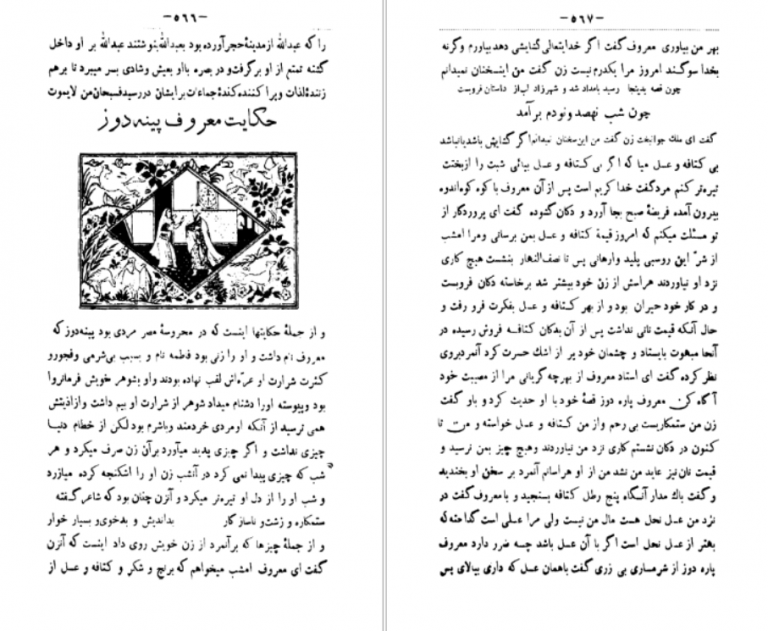 -۵۶۶-
را که عبدالله از مدینهٔ حجر آورده بود بعبدالله بنوشتند عبدالله بر او داخل
گشته تمتع از او برگرفت و در بصره با او بعیش و شادی بسر میبرد تا برهم
زنندهٔ لذات و پراکنده کنندهٔ جماعات برایشان در رسید فسبحان من لایموت
حکایت معروف پینه دوز
و از جملهٔ حکایتها اینست که در محروسهٔ مصر مردی بود پینه‌دوز که
معروف نام داشت و او را زنی بود فاطمه نام و بسبب بی‌شرمی و فجور و
کثرت شرارت او عرّه‌اش لقب نهاده بودند و او بشوهر خویش فرمانروا
بود و پیوسته او را دشنام میداد شوهر از شرارت او بیم داشت و از اذیتش
همی ترسید از آنکه او مردی خردمند و باشرم بود لکن از حطام دنیا
چیزی نداشت و اگر چیزی پدید میآورد بر آن زن صرف میکرد و هر
شب که چیزی پیدا نمی کرد در آنشب زن او را اشکنجه کرده میازرد
و شب او را از دل او تیره‌تر میکرد و آنزن چنان بود که شاعر گفته
ستمکاره و زشت و ناسازگار بداندیش و بدخوی و بسیار خوار
و از جملهٔ چیزها که بر آنمرد از زن خویش روی داد اینست که آنزن
گفت ای معروف امشب میخواهم که برنج و شکر و کنافه و عسل از
-۵۶۷-
بهر من بیاوری معروف گفت اگر خدایتعالی گشایشی دهد بیاورم وگرنه
بخدا سوگند امروز مرا یکدرم نیست زن گفت من اینسخنان نمیدانم
چون قصه بدینجا رسید بامداد شد و شهرزاد لب از داستان فروبست
چون شب نهصد و نودم برآمد
گفت ای ملک جوانبخت زن گفت من این سخنان نمیدانم اگر گشایش باشد یا نباشد
بی کنافه و عسل میا که اگر بی کنافه و عسل بیائی شبت را از بخت
تیره‌تر کنم مرد گفت خدا کریم است پس از آن معروف با کوه کوه اندوه
بیرون آمده فریضهٔ صبح بجا آورد و دکان گشوده گفت ای پروردگار از
تو مسئلت میکنم که امروز قیمة کنافه و عسل بمن برسانی و مرا امشب
از شرّ این روسبی پلید وارهانی پس تا نصف‌النهار بنشست هیچ کاری
نزد او نیاوردند هراسش از زن خود بیشتر شد برخاسته دکان فروبست
و در کار خود حیران بود و از بهر کنافه و عسل بفکرت فرو رفت و
حال آنکه قیمت نانی نداشت پس از آن بدکان کنافه فروش رسیده در
آنجا مبهوت بایستاد و چشمان خود پر از اشک حسرت کرد آنمرد بروی
نظر کرده گفت ای استاد معروف از بهر چه گریانی مرا از مصیبت خود
آگاه کن معروف پاره دوز قصهٔ خود با او حدیث کرد و باو گفت
زن من ستمکاریست بی رحم و از من کنافه و عسل خواسته و من تا
کنون در دکان نشستم کاری نزد من نیاوردند و هیچ چیز بمن نرسید و
قیمت نان نیز عاید من نشد من از او هراسانم آنمرد بر سخن او بخندید
و گفت باک مدار آنگاه پنج رطل کنافه بسنجید و با معروف گفت در
نزد من عسل نحل هست مال من نیست ولی مرا عسلی است گداخته که
بهتر از عسل نحل است اگر با آن عسل باشد چه ضرر دارد معروف
پاره دوز از شرمساری بی زری گفت باهمان عسل که داری بیالای پس